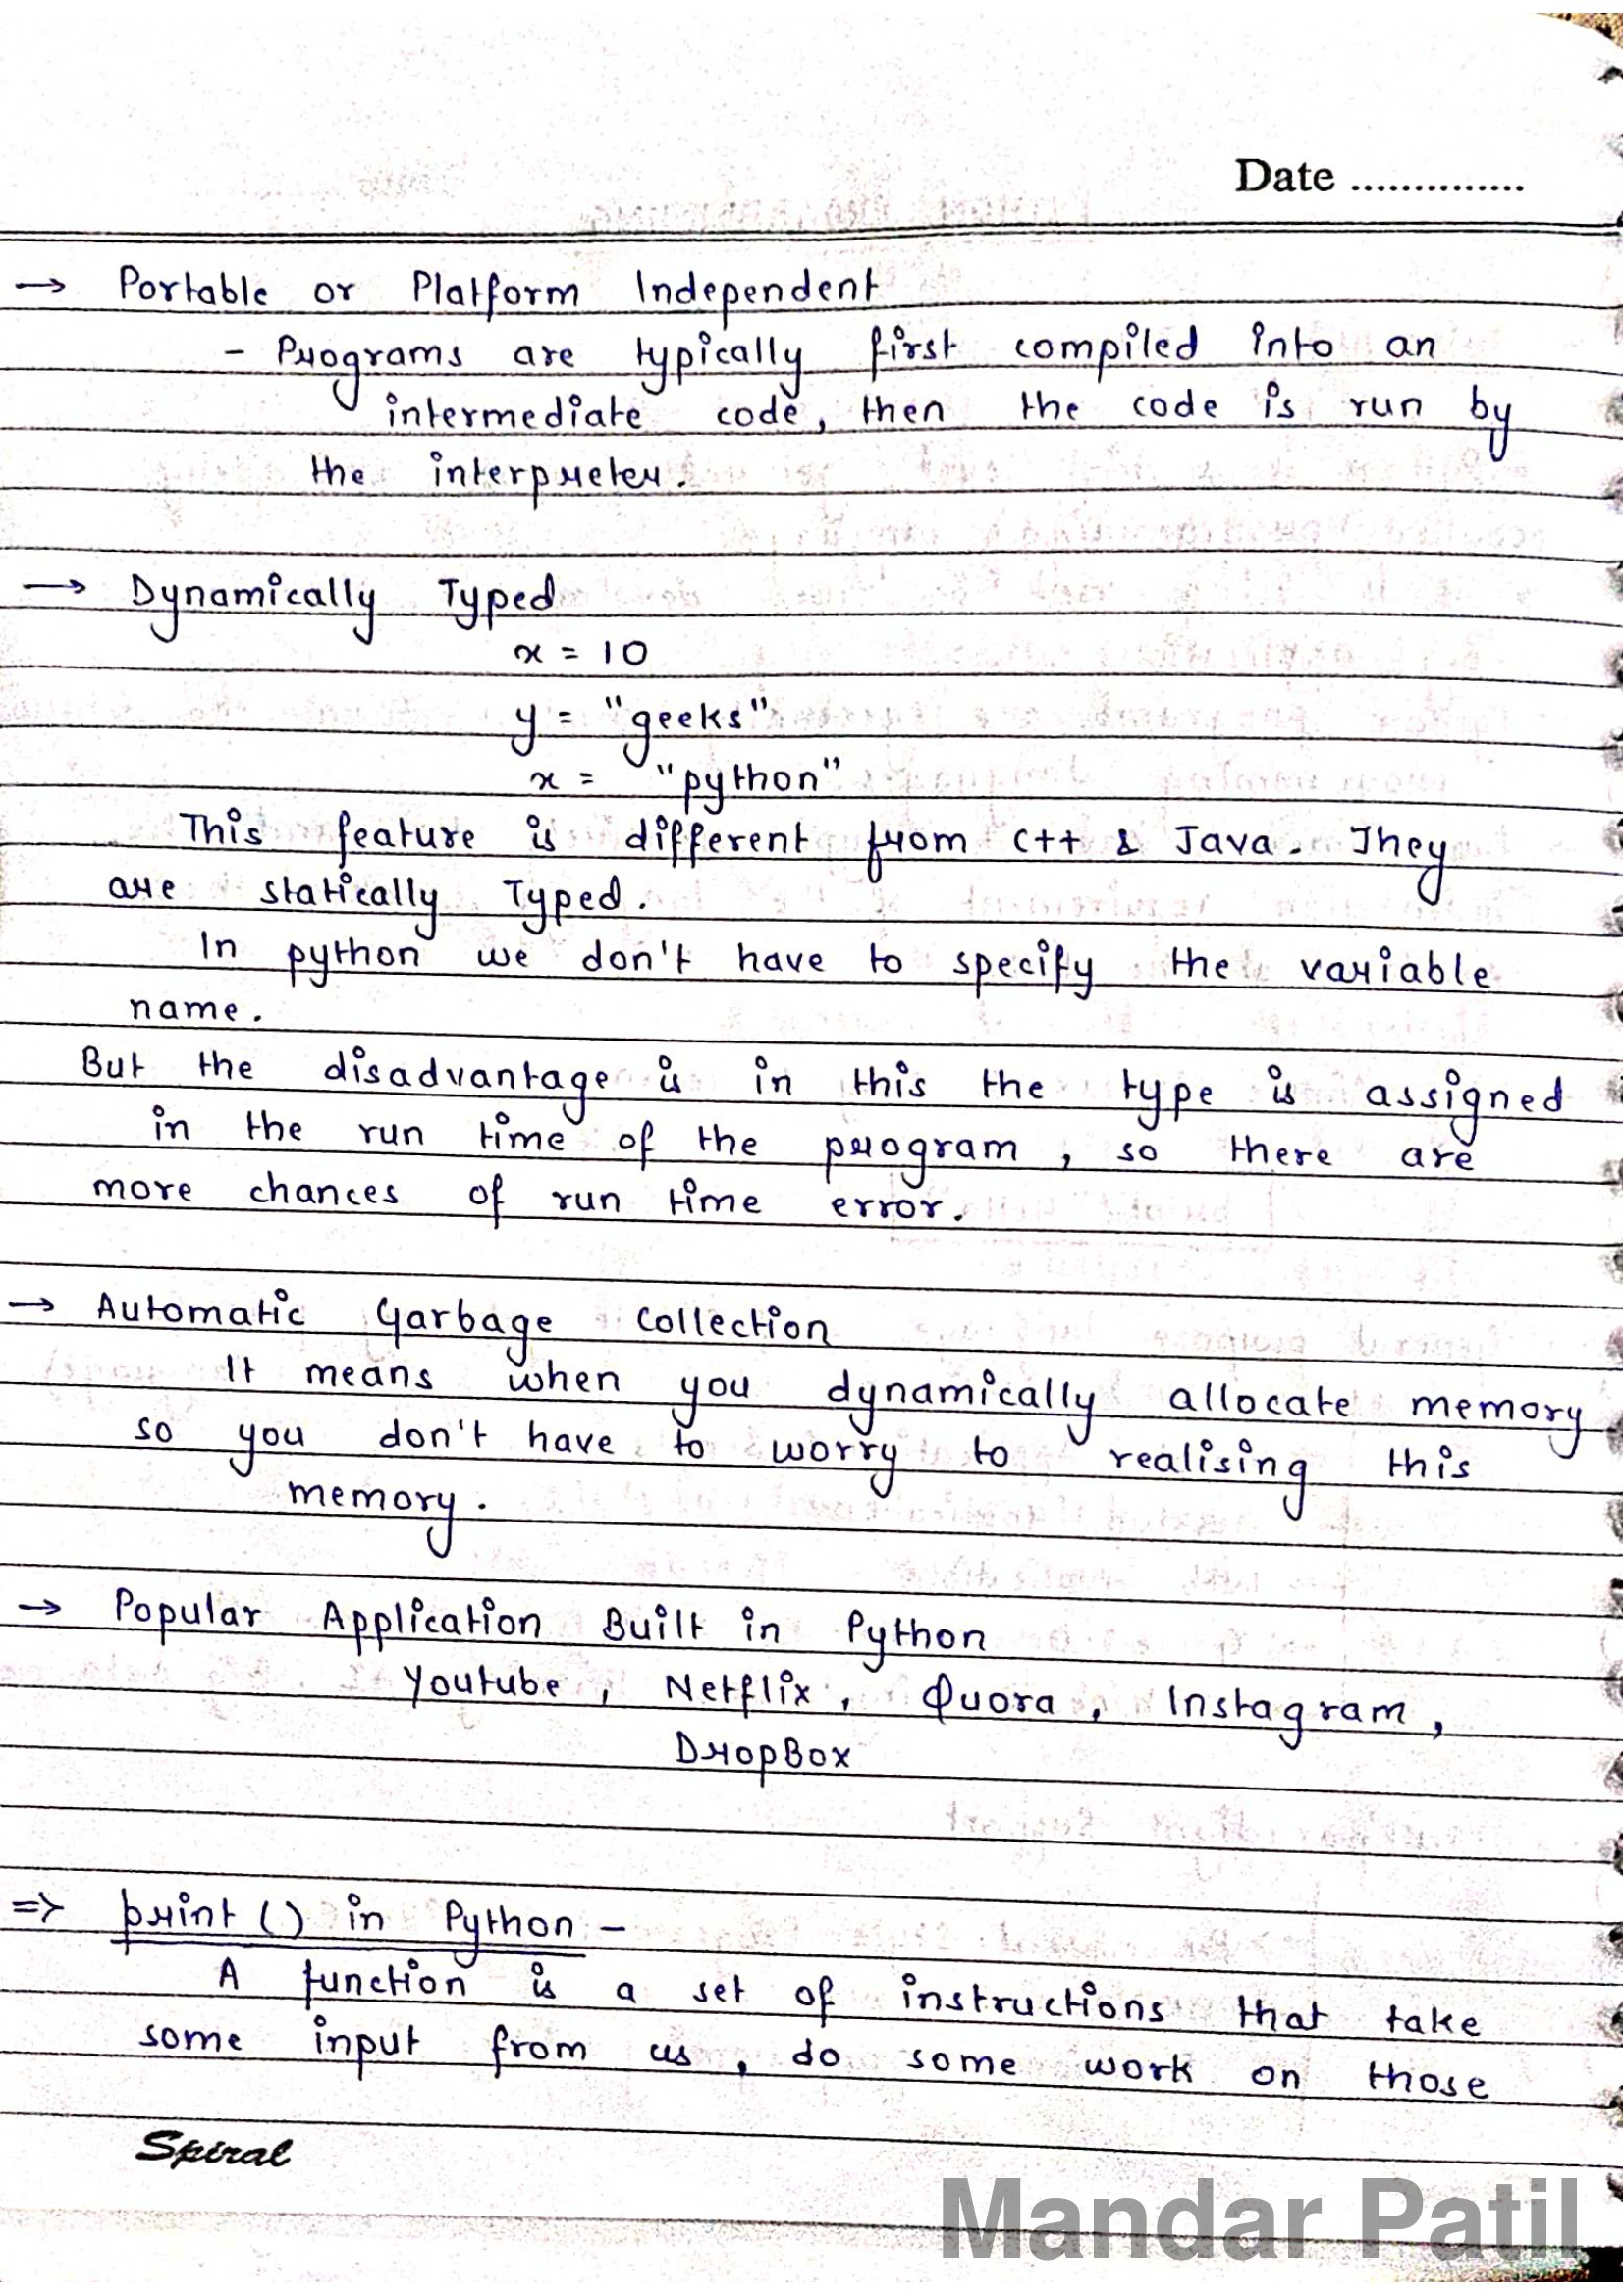 Date ..............
→ Portable or Platform Independent
- Programs are typically first compiled into an
intermediate code, then the code is run by
the interpreter.
→ Dynamically Typed
x = 10
y = "geeks"
x = "python"
This feature is different from C++ & Java. They
are statically Typed.
In python we don't have to specify the variable
name.
But the disadvantage is in this the type is assigned
in the run time of the program, so there are
more chances of run time error.
→ Automatic Garbage Collection
It means when you dynamically allocate memory
so you don't have to worry to realising this
memory.
→ Popular Application Built in Python
Youtube, Netflix, Quora, Instagram,
DropBox
=> print () in Python -
A function is a set of instructions that take
some input from us, do some work on those
Spiral
Mandar Patil